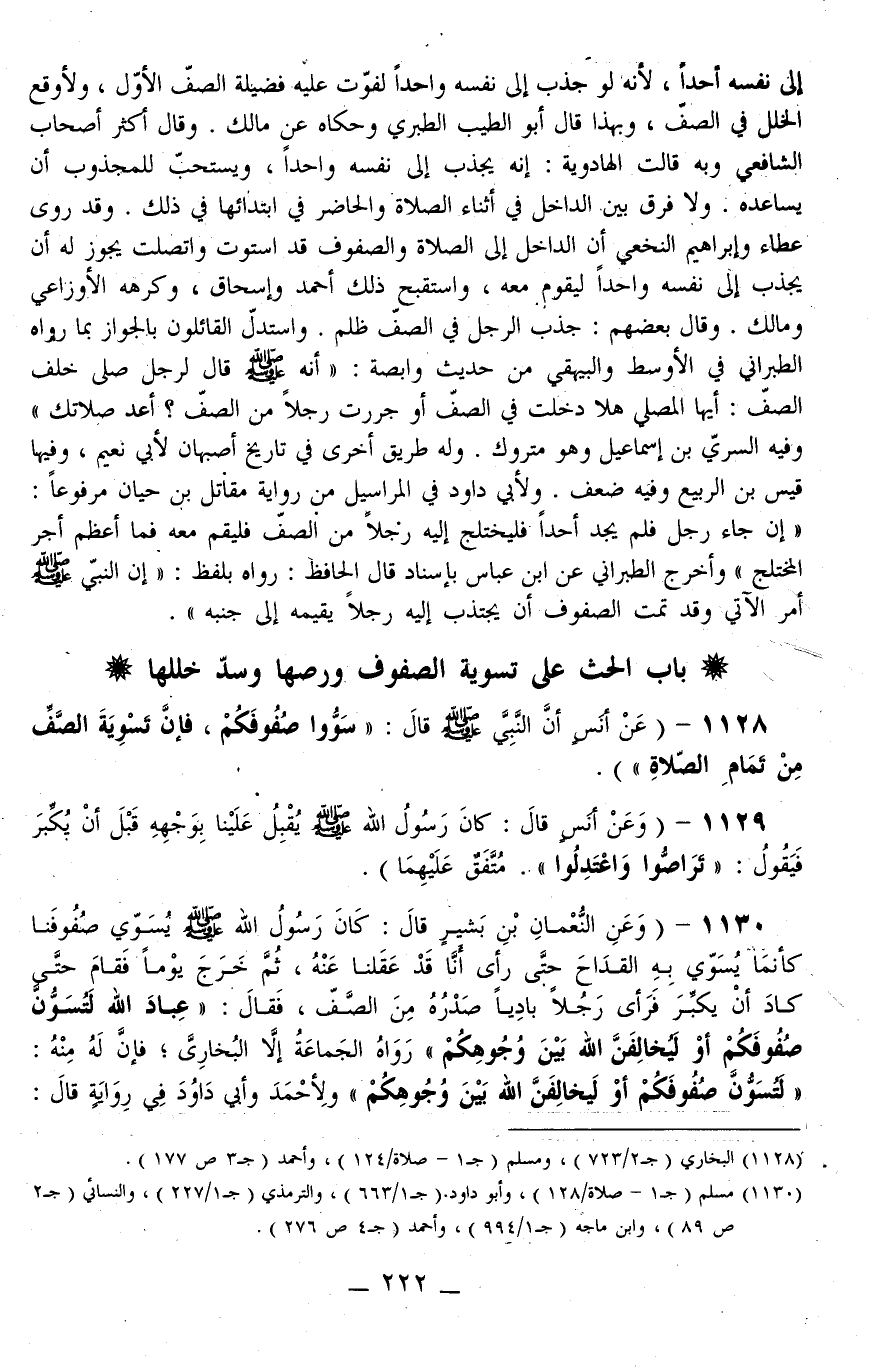 إلى نفسه أحداً ، لأنه لو جذب إلى نفسه واحداً لفوّت عليه فضيلة الصفّ الأوّل ، ولأوقع
الخلل في الصفّ ، وبهذا قال أبو الطيب الطبري وحكاه عن مالك . وقال أكثر أصحاب
الشافعي وبه قالت الهادوية : إنه يجذب إلى نفسه واحداً ، ويستحبّ للمجذوب أن
يساعده . ولا فرق بين الداخل في أثناء الصلاة والحاضر في ابتدائها في ذلك . وقد روى
عطاء وإبراهيم النخعي أن الداخل إلى الصلاة والصفوف قد استوت واتصلت يجوز له أن
يجذب إلى نفسه واحداً ليقوم معه ، واستقبح ذلك أحمد وإسحاق ، وكرهه الأوزاعي
ومالك . وقال بعضهم : جذب الرجل في الصفّ ظلم . واستدلّ القائلون بالجواز بما رواه
الطبراني في الأوسط والبيهقي من حديث وابصة : « أنه ﷺ قال لرجل صلى خلف
الصفّ : أيها المصلي هلا دخلت في الصفّ أو جررت رجلاً من الصفّ ؟ أعد صلاتك »
وفيه السريّ بن إسماعيل وهو متروك . وله طريق أخرى في تاريخ أصبهان لأبي نعيم ، وفيها
قيس بن الربيع وفيه ضعف . ولأبي داود في المراسيل من رواية مقاتل بن حيان مرفوعاً :
« إن جاء رجل فلم يجد أحداً فليختلج إليه رجلاً من الصفّ فليقم معه فما أعظم أجر
المختلج » وأخرج الطبراني عن ابن عباس بإسناد قال الحافظ : رواه بلفظ : « إن النبيّ ﷺ
أمر الآتي وقد تمت الصفوف أن يجتذب إليه رجلاً يقيمه إلى جنبه » .
❋ باب الحث على تسوية الصفوف ورصها وسدّ خللها ❋
١١٢٨ – ( عَنْ أنَسٍ أنَّ النَّبِيَّ ﷺ قالَ : « سَوُّوا صُفُوفَكُمْ ، فإنَّ تَسْوِيَةَ الصَّفِّ
مِنْ تَمَامِ الصّلاةِ » ) .
١١٢٩ – ( وَعَنْ أنَسٍ قالَ : كانَ رَسُولُ الله ﷺ يُقْبِلُ عَلَيْنا بِوَجْهِهِ قَبْلَ أنْ يُكَبِّرَ
فَيَقُولُ : « تَرَاصُّوا وَاعْتَدِلُوا » . مُتَّفَقٌ عَلَيْهِمَا ) .
١١٣٠ – ( وَعَنِ النُّعْمانِ بْنِ بَشيرٍ قالَ : كَانَ رَسُولُ الله ﷺ يُسَوّي صُفُوفَنا
كأنمَا يُسَوّي بِهِ القِداحَ حتَّى رأى أَنَّا قَدْ عَقَلنا عَنْهُ ، ثُمَّ خَرَجَ يوْماً فَقامَ حتَّى
كادَ أنْ يكبِّرَ فَرَأى رَجُلاً بادِياً صَدْرُهُ مِنَ الصَّفّ ، فَقالَ : « عِبادَ الله لَتُسَوُّنَّ
صُفُوفَكُمْ أوْ لَيُخالِفَنَّ الله بَيْنَ وُجُوهِكُمْ » رَوَاهُ الجَماعَةُ إلَّا البُخارِىَّ ؛ فإنَّ لَهُ مِنْهُ :
« لَتُسَوُّنَّ صُفُوفَكُمْ أوْ لَيخالِفَنَّ الله بَيْنَ وُجُوهِكُمْ » ولِأحْمَدَ وأبي دَاوُدَ فِي رِوَايَةٍ قالَ :
(١١٢٨) البخاري ( جـ٧٢٣/٢ ) ، ومسلم ( جـ١ – صلاة/١٢٤ ) ، وأحمد ( جـ٣ ص ١٧٧ ) .
(١١٣٠) مسلم ( جـ١ – صلاة/١٢٨ ) ، وأبو داود.( جـ٦٦٣/١ ) ، والترمذي ( جـ٢٢٧/١ ) ، والنسائي ( جـ٢
ص ٨٩ ) ، وابن ماجه ( جـ٩٩٤/١ ) ، وأحمد ( جـ٤ ص ٢٧٦ ) .
– ٢٢٢ –